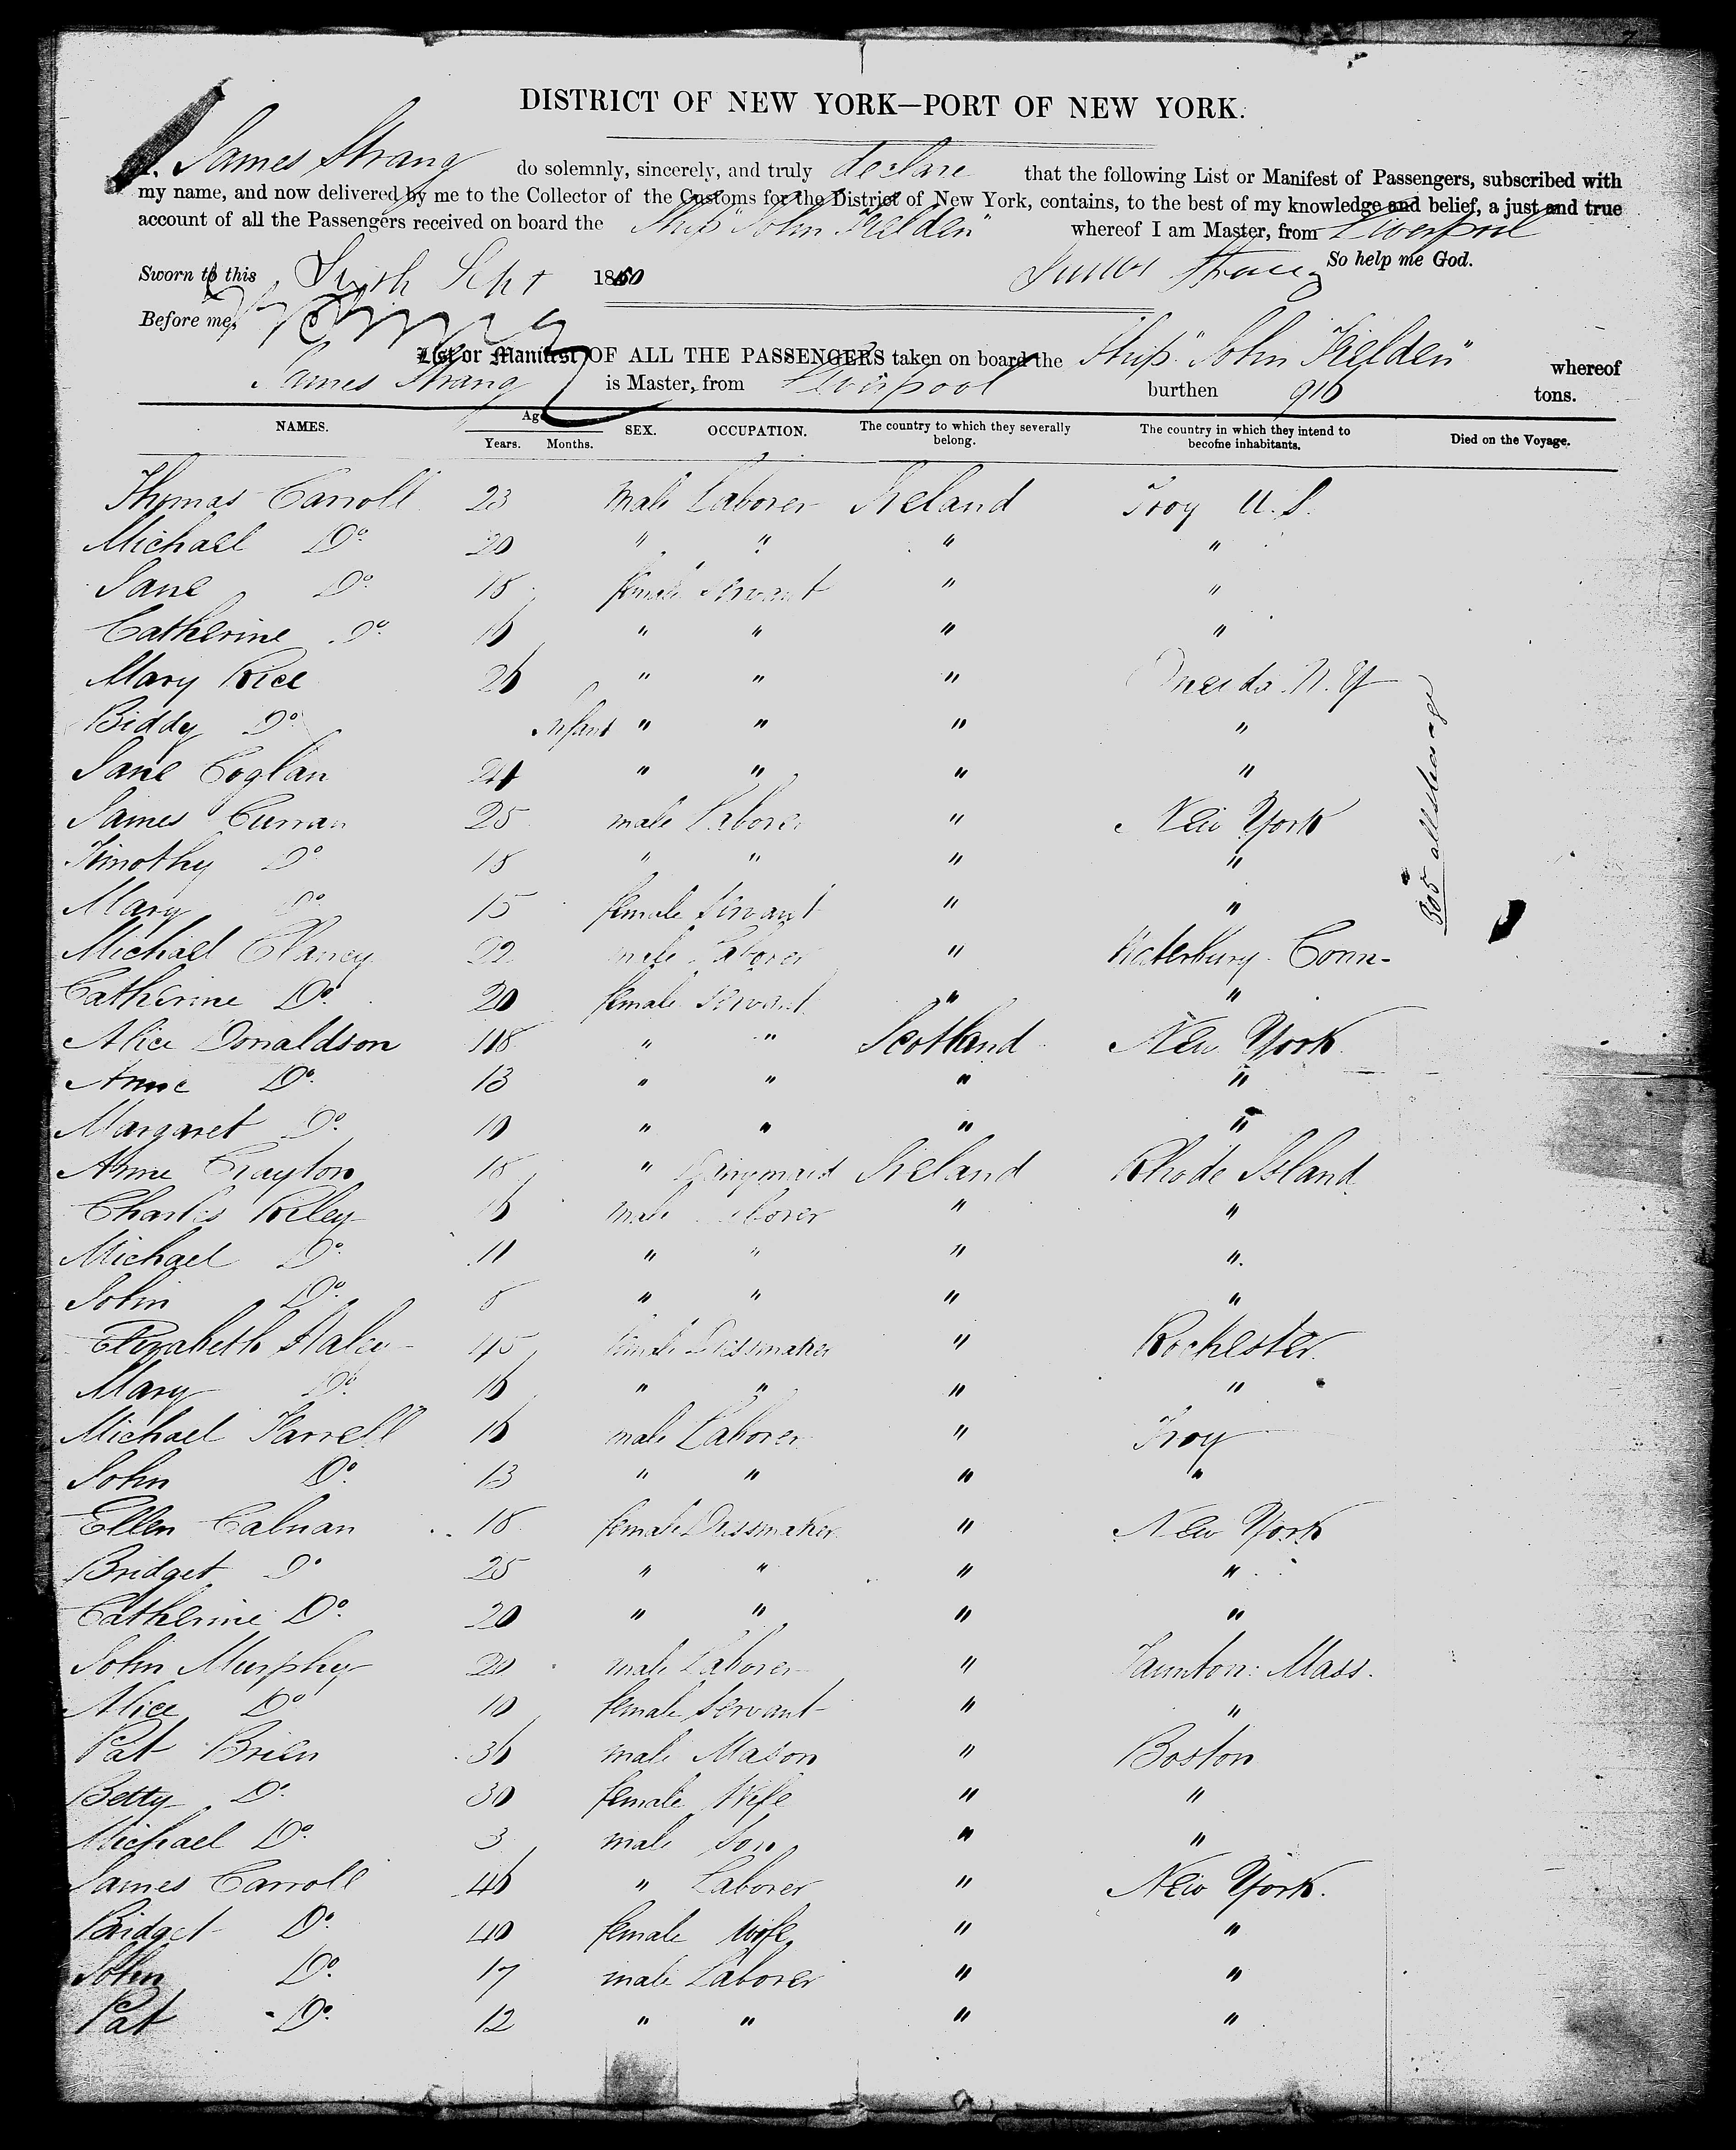 DISTRICT OF NEW YORK—PORT OF NEW YORK.
I. James Strang do solemnly, sincerely, and truly declare that the following List or Manifest of Passengers, subscribed with
my name, and now delivered by me to the Collector of the Customs for the District of New York, contains, to the best of my knowledge and belief, a just and true
account of all the Passengers received on board the Ship "John Fielden" whereof I am Master, from Liverpool
So help me God.
Sworn to this Sept 1850 James Strang
Before me,
List or Manifest OF ALL THE PASSENGERS taken on board the Ship "John Fielden" whereof
James Strang is Master, from Liverpool burthen 916 tons.
NAMES. Age Years. Months. SEX. OCCUPATION. The country to which they severally belong. The country in which they intend to become inhabitants. Died on the Voyage.
Thomas Carroll 23 male Laborer Ireland Troy U.S.
Michael Do 20 " " " "
Jane Do 18 female servant " "
Catherine Do 16 " " " "
Mary Rice 26 " " " Oneida N.Y
Biddy Do Infant " " " "
Jane Coglan 24 " " " "
James Curran 25 male Laborer " New York
Timothy Do 18 " " " "
Mary Do 15 female servant " "
Michael Clancy 22 male Laborer " Waterbury Conn-
Catherine Do 20 female servant " "
Alice Donaldson 18 " " Scotland New York
Anne Do 13 " " " "
Margaret Do 10 " " " "
Anne Crayton 18 " Dairymaid Ireland Rhode Island
Charles Riley 16 male Laborer " "
Michael Do 11 " " " "
John Do 8 " " " "
Elizabeth Haley 45 female Dressmaker " Rochester
Mary Do 16 " " " "
Michael Farrell 16 male Laborer " Troy
John Do 13 " " " "
Ellen Calnan 18 female Dressmaker " New York
Bridget Do 25 " " " "
Catherine Do 20 " " " "
John Murphy 20 male Laborer " Taunton: Mass.
Alice Do 10 female servant " "
Pat Brien 36 male Mason " Boston
Betty Do 30 female Wife " "
Michael Do 3 male son " "
James Carroll 46 " Laborer " New York.
Bridget Do 40 female wife " "
John Do 17 male Laborer " "
Pat Do 12 " " " "
305 all steerage